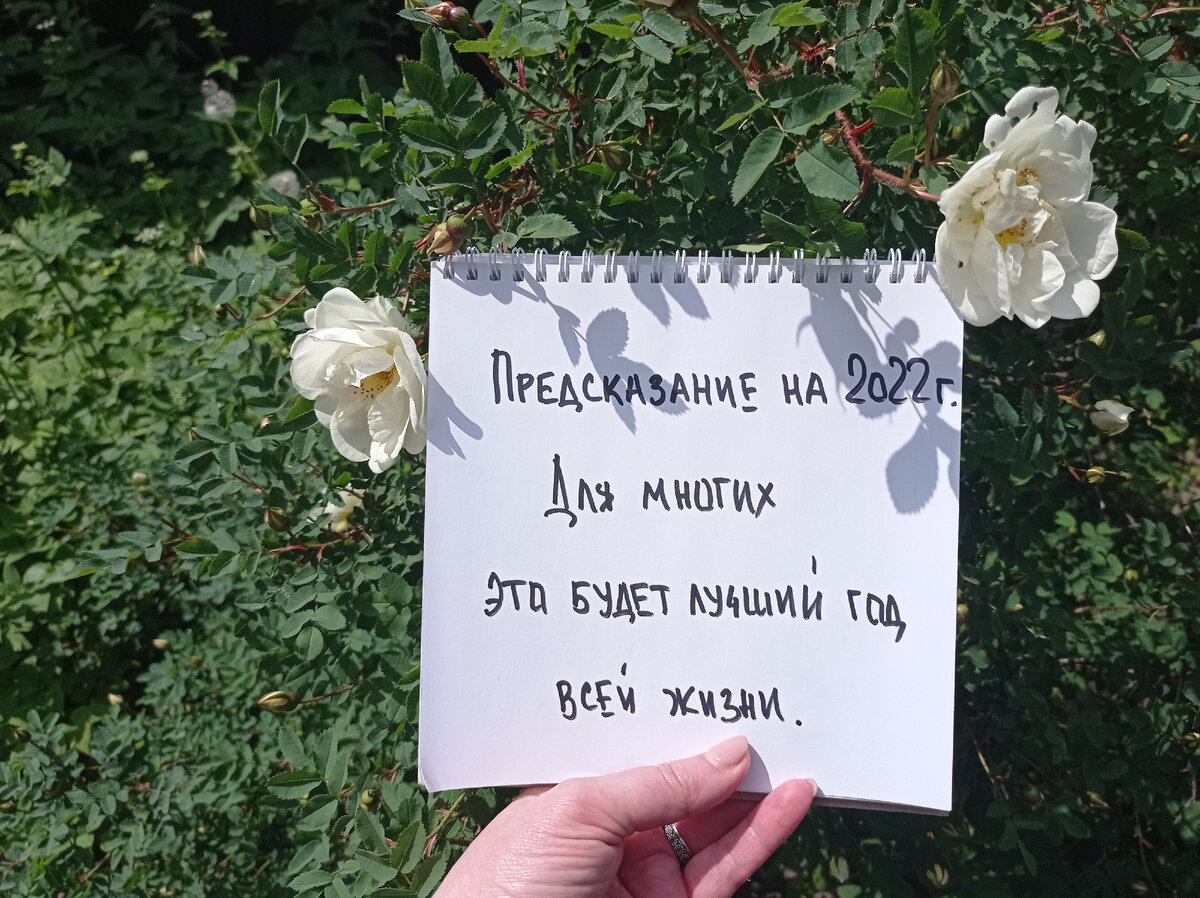 Предсказание на 2022г.
Для многих
это будет лучший год
всей жизни.